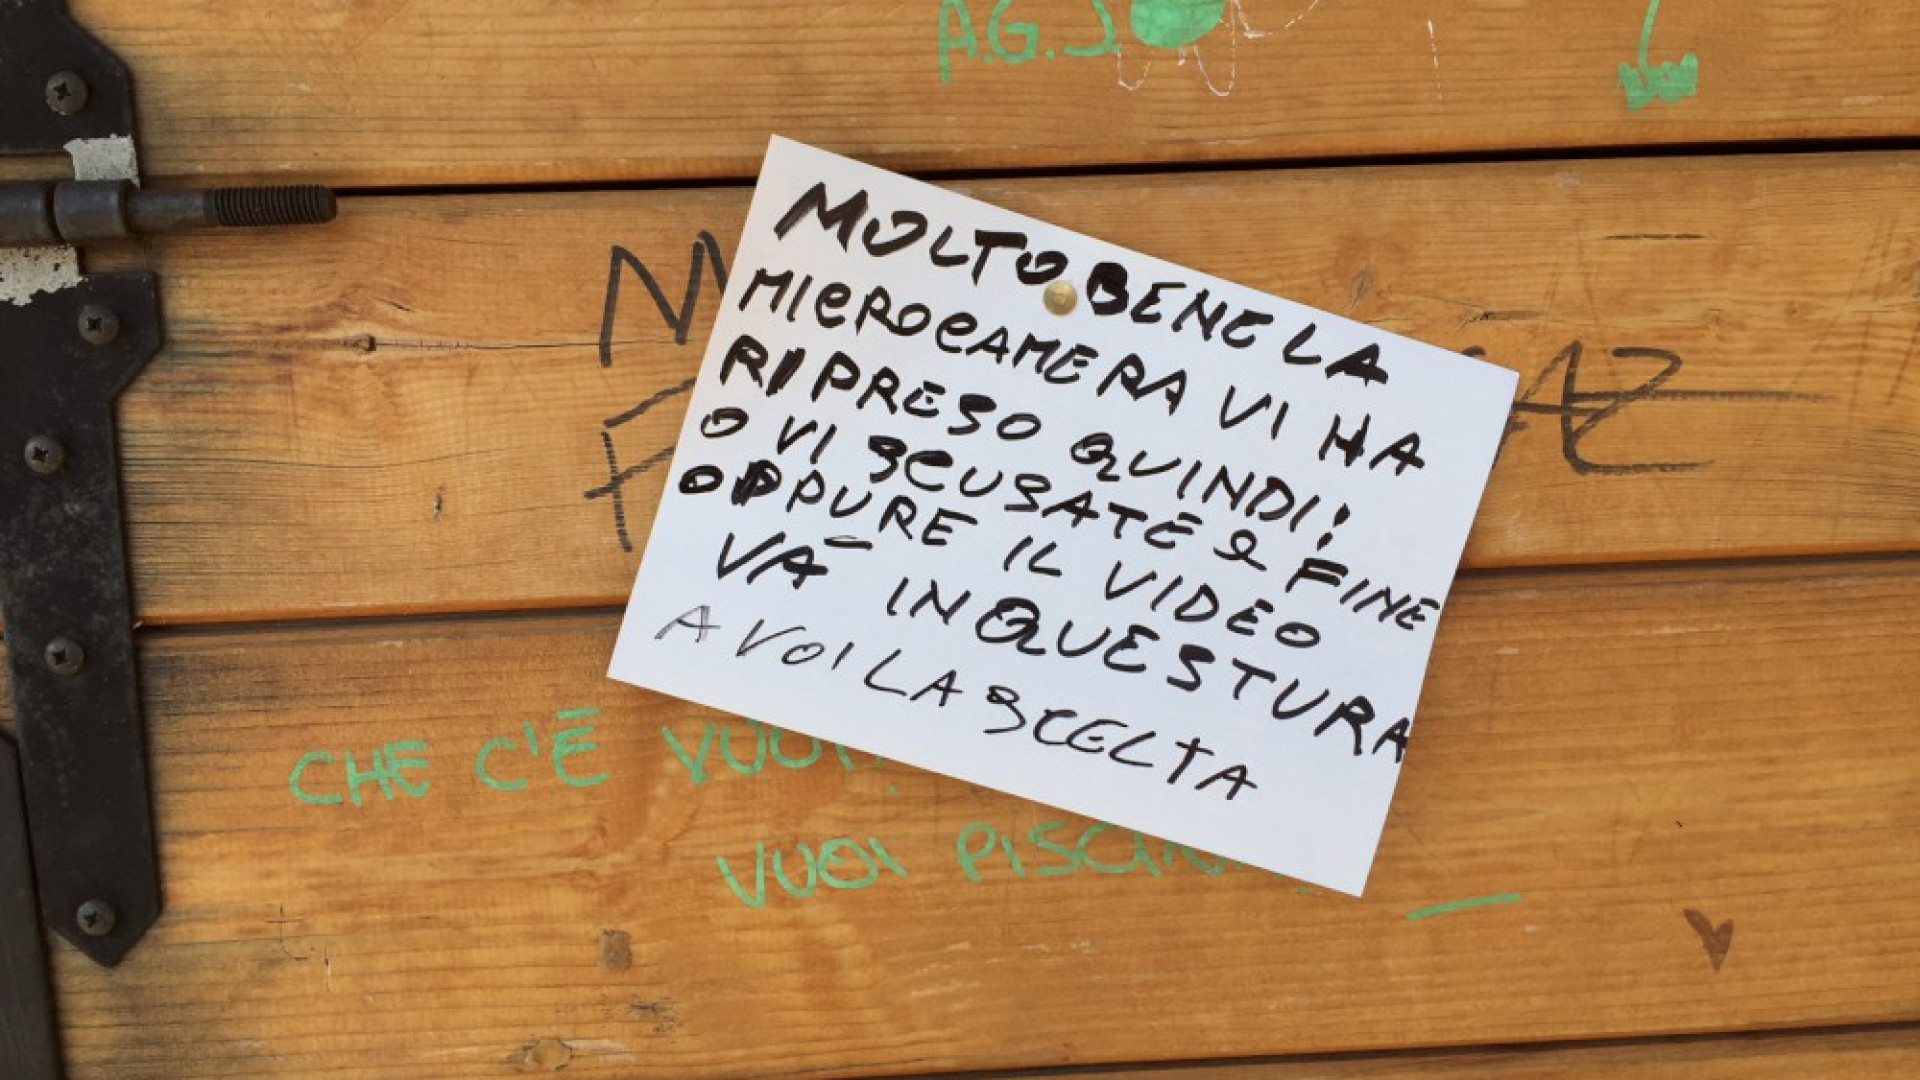 A.G.J.
MOLTO BENE LA
MICROCAMERA VI HA
RIPRESO QUINDI:
O VI SCUSATE E FINE
OPPURE IL VIDEO
VA' IN QUESTURA
A VOI LA SCELTA
CHE C'È VUOI
VUOI